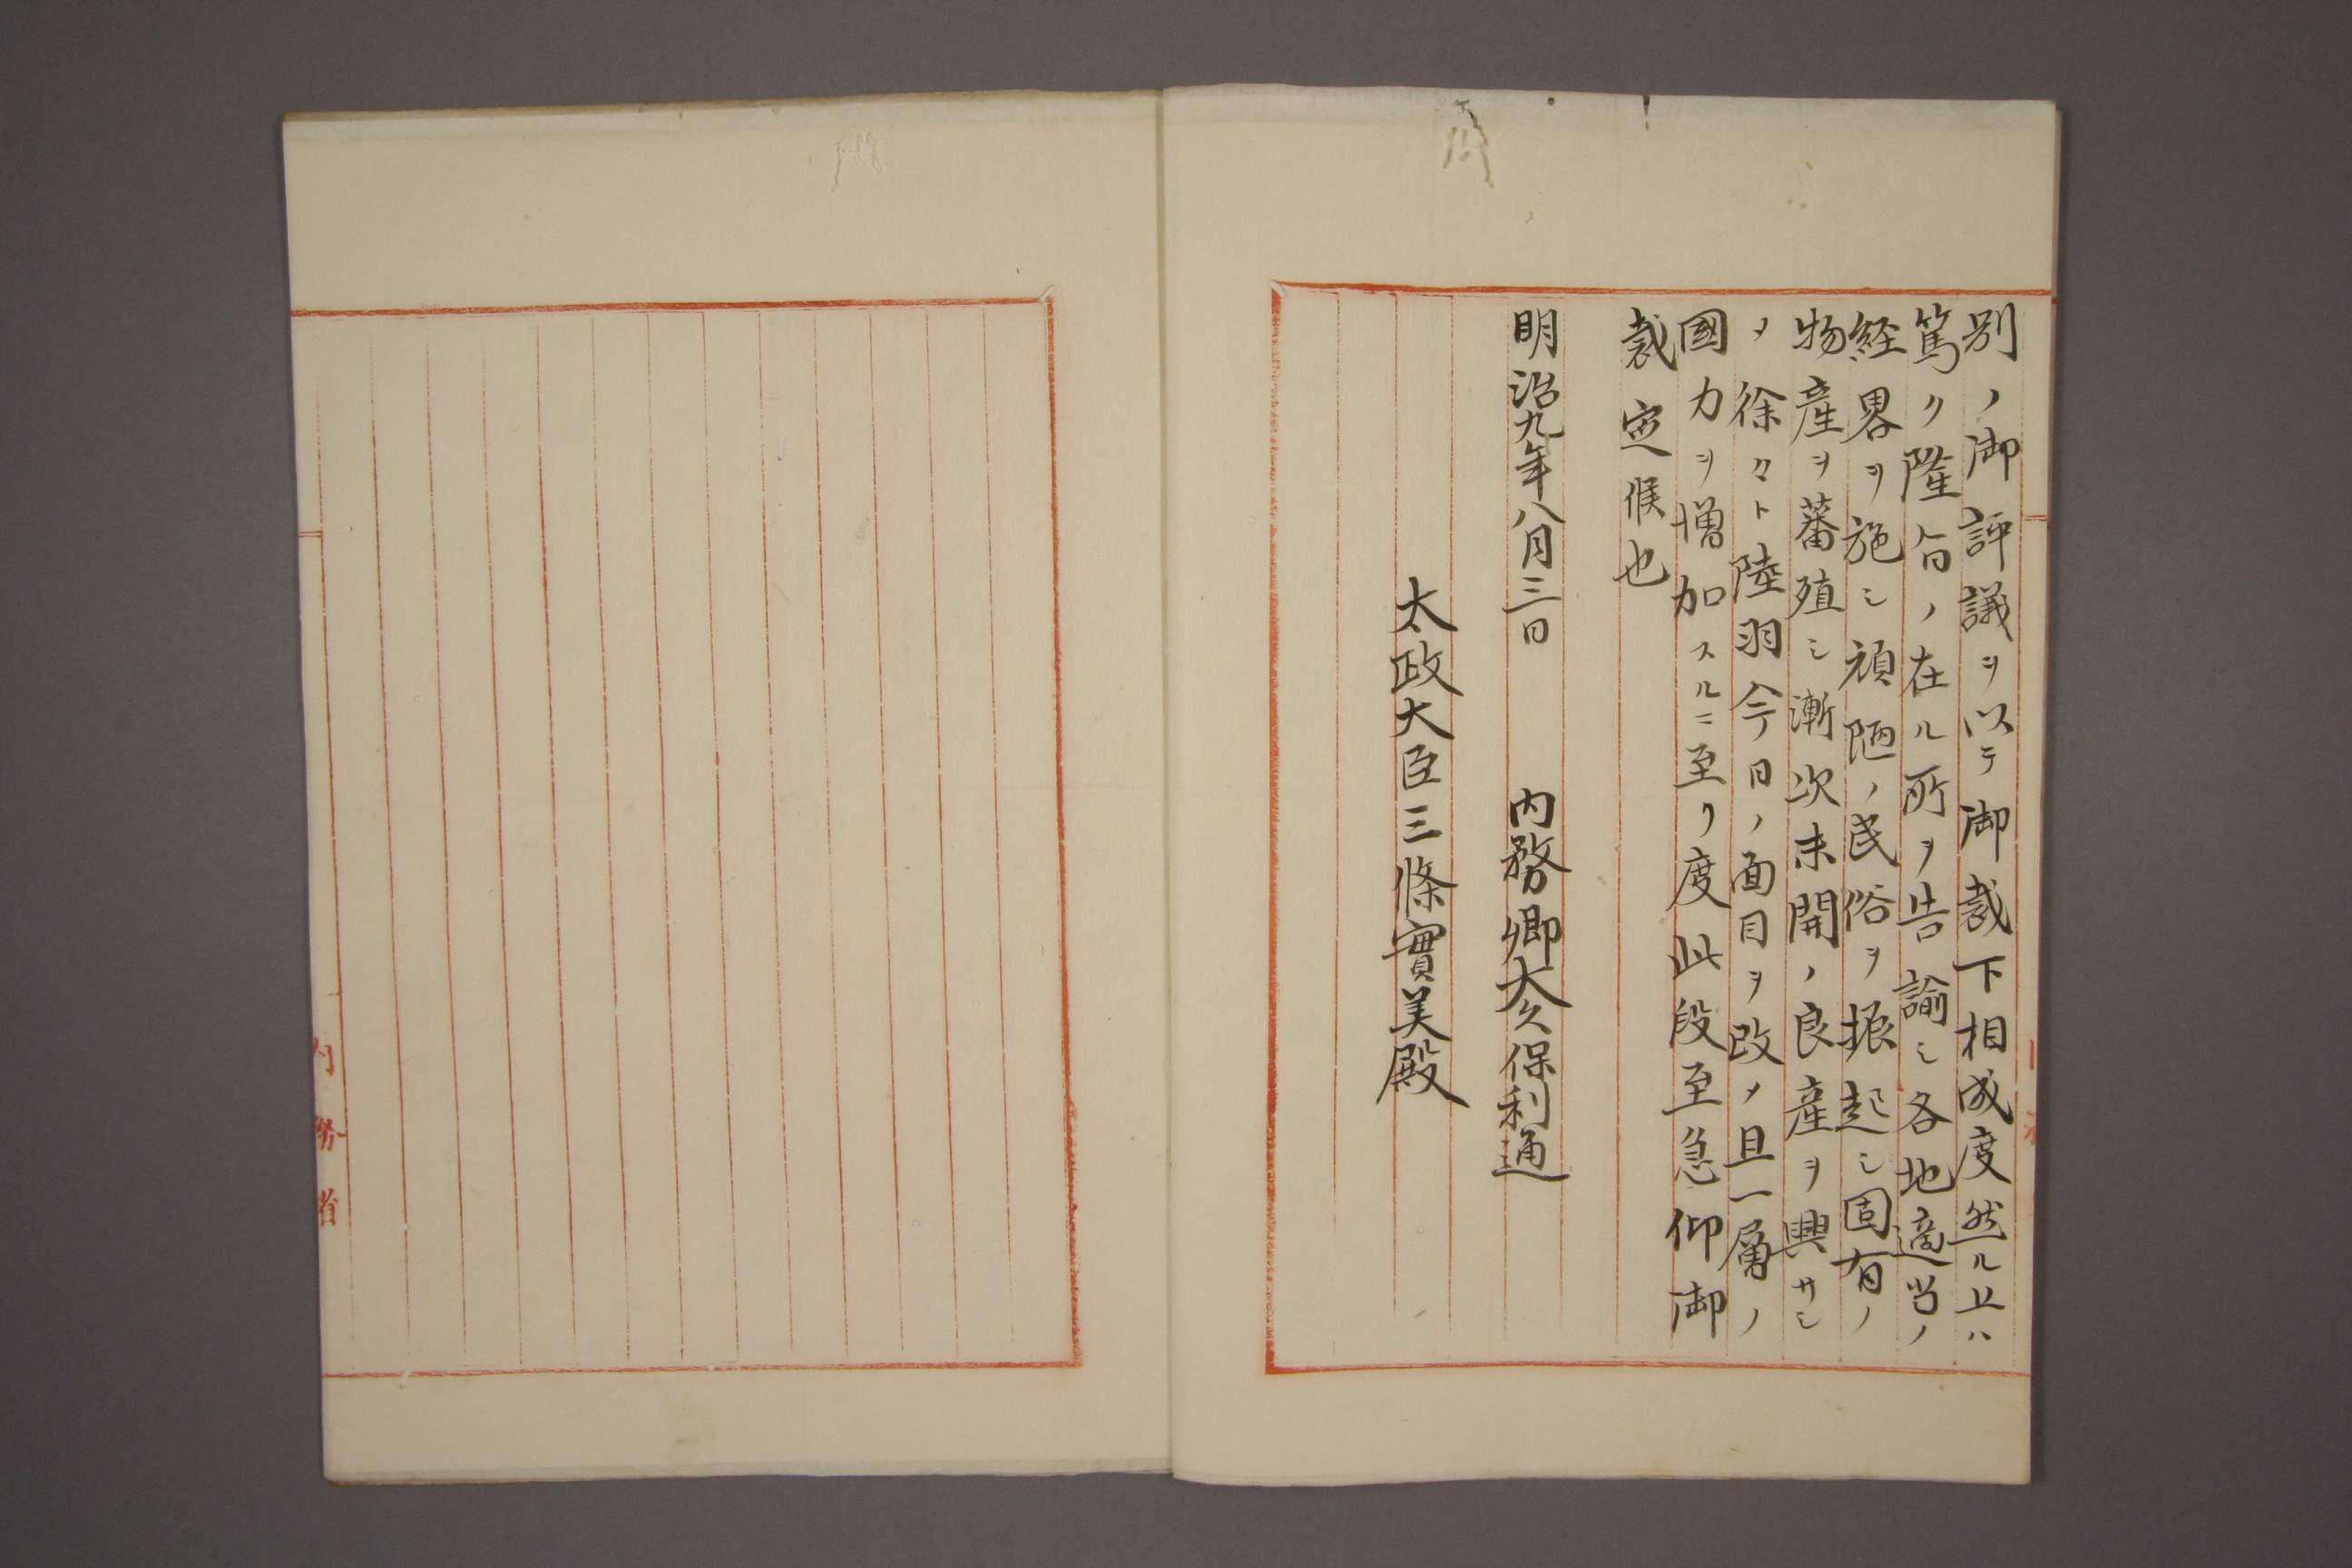 別ノ御評議ヲ以テ御裁下相成度然ル上ハ
篤ク隆旨ノ在ル所ヲ告諭シ各地適当ノ
経畧ヲ施シ頑陋ノ民俗ヲ振起シ固有ノ
物産ヲ蕃殖シ漸次未開ノ良産ヲ興サシ
ヲ徐々ト陸羽今日ノ面目ヲ改メ且一層ノ
國力ヲ増加スルニ至リ度此段至急仰御
裁定候也
明治九年八月三日 内務卿大久保利通
太政大臣三條實美殿
内務省